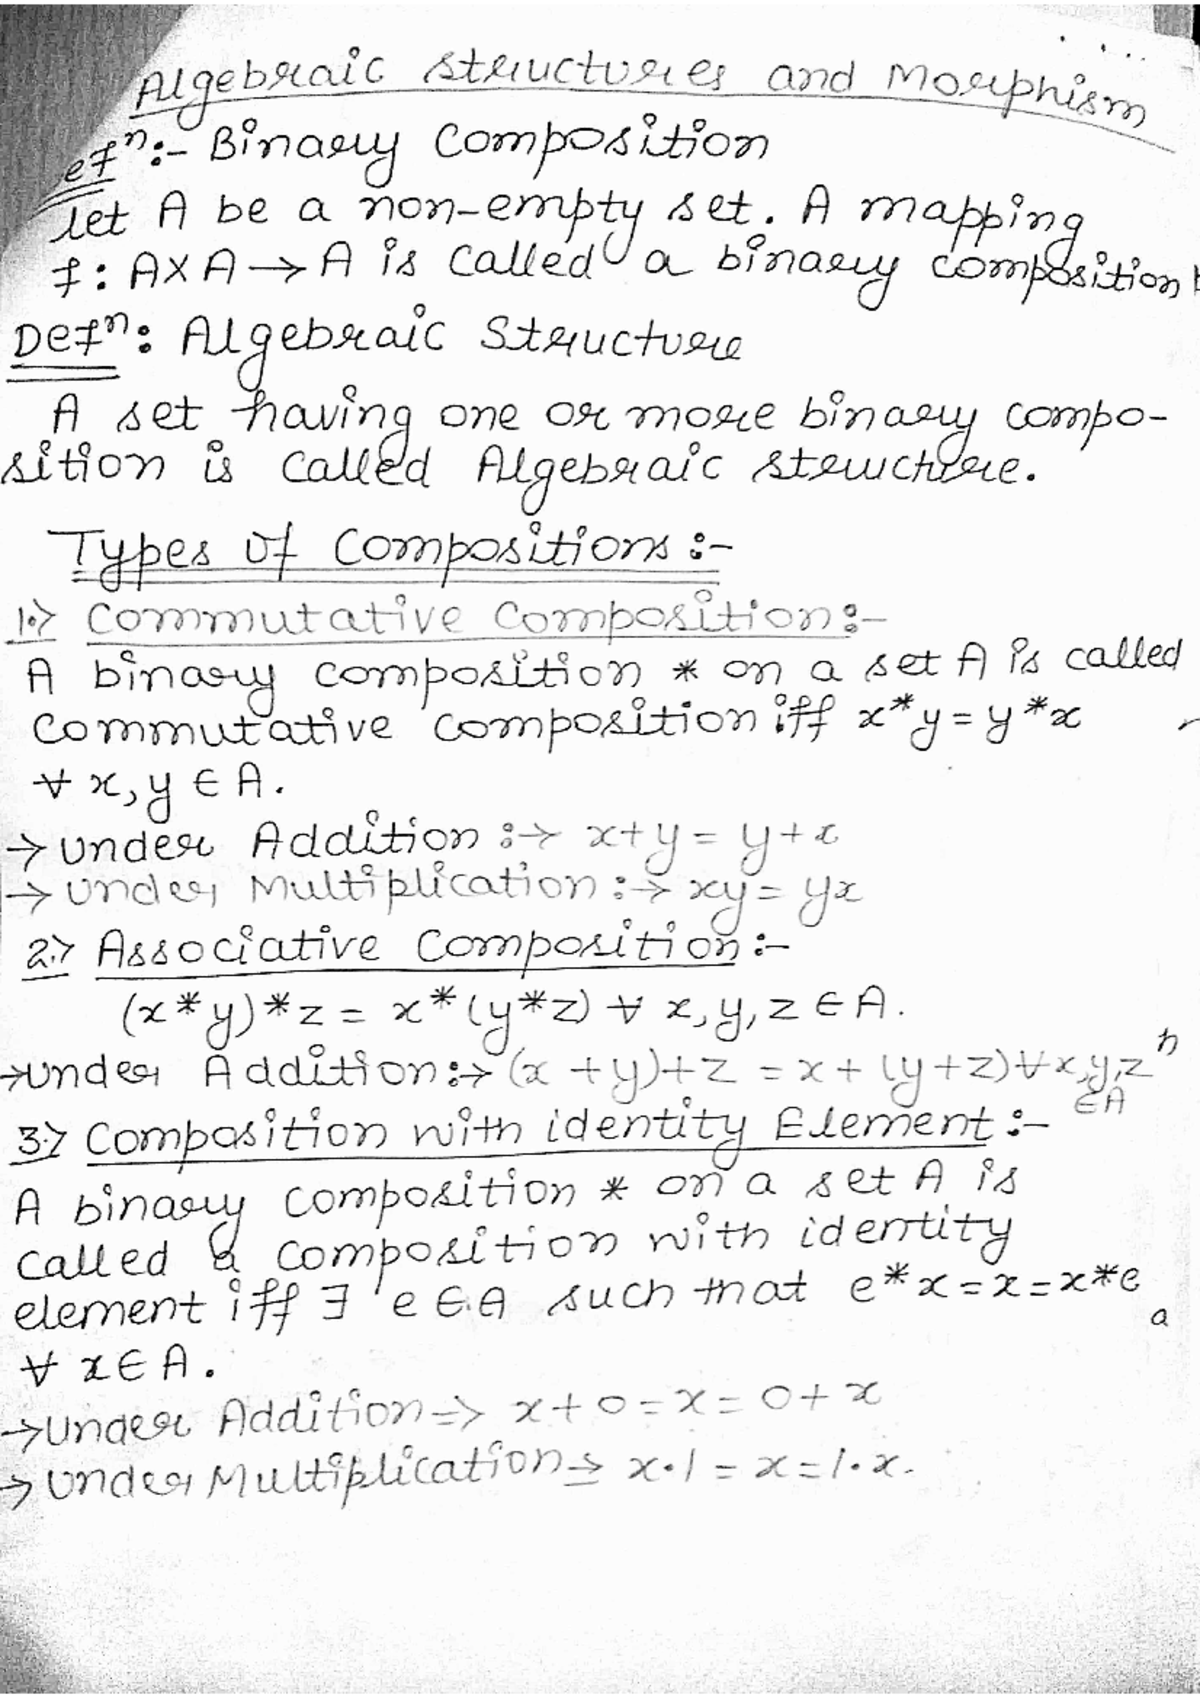 Algebraic structures and Morphism
efn:- Binary Composition
let A be a non-empty set. A mapping
f: A×A→A is called a binary composition
Defn: Algebraic Structure
A set having one or more binary compo-
sition is called Algebraic structure.
Types of Compositions:-
1.> Commutative Composition:-
A binary composition * on a set A is called
commutative composition iff x*y=y*x
∀ x,y ∈ A.
→ under Addition :→ x+y = y+x
→ under Multiplication :→ xy = yx
2.> Associative Composition:-
(x*y)*z = x*(y*z) ∀ x,y,z ∈ A.
→under Addition:→ (x+y)+z = x+(y+z) ∀ x,y,z
∈A
3.> Composition with identity Element:-
A binary composition * on a set A is
called a composition with identity
element iff ∃ e∈A such that e*x=x=x*e
∀ x∈A.
→under Addition=> x+0=x=0+x
→ under Multiplication=> x.1 = x=1.x.